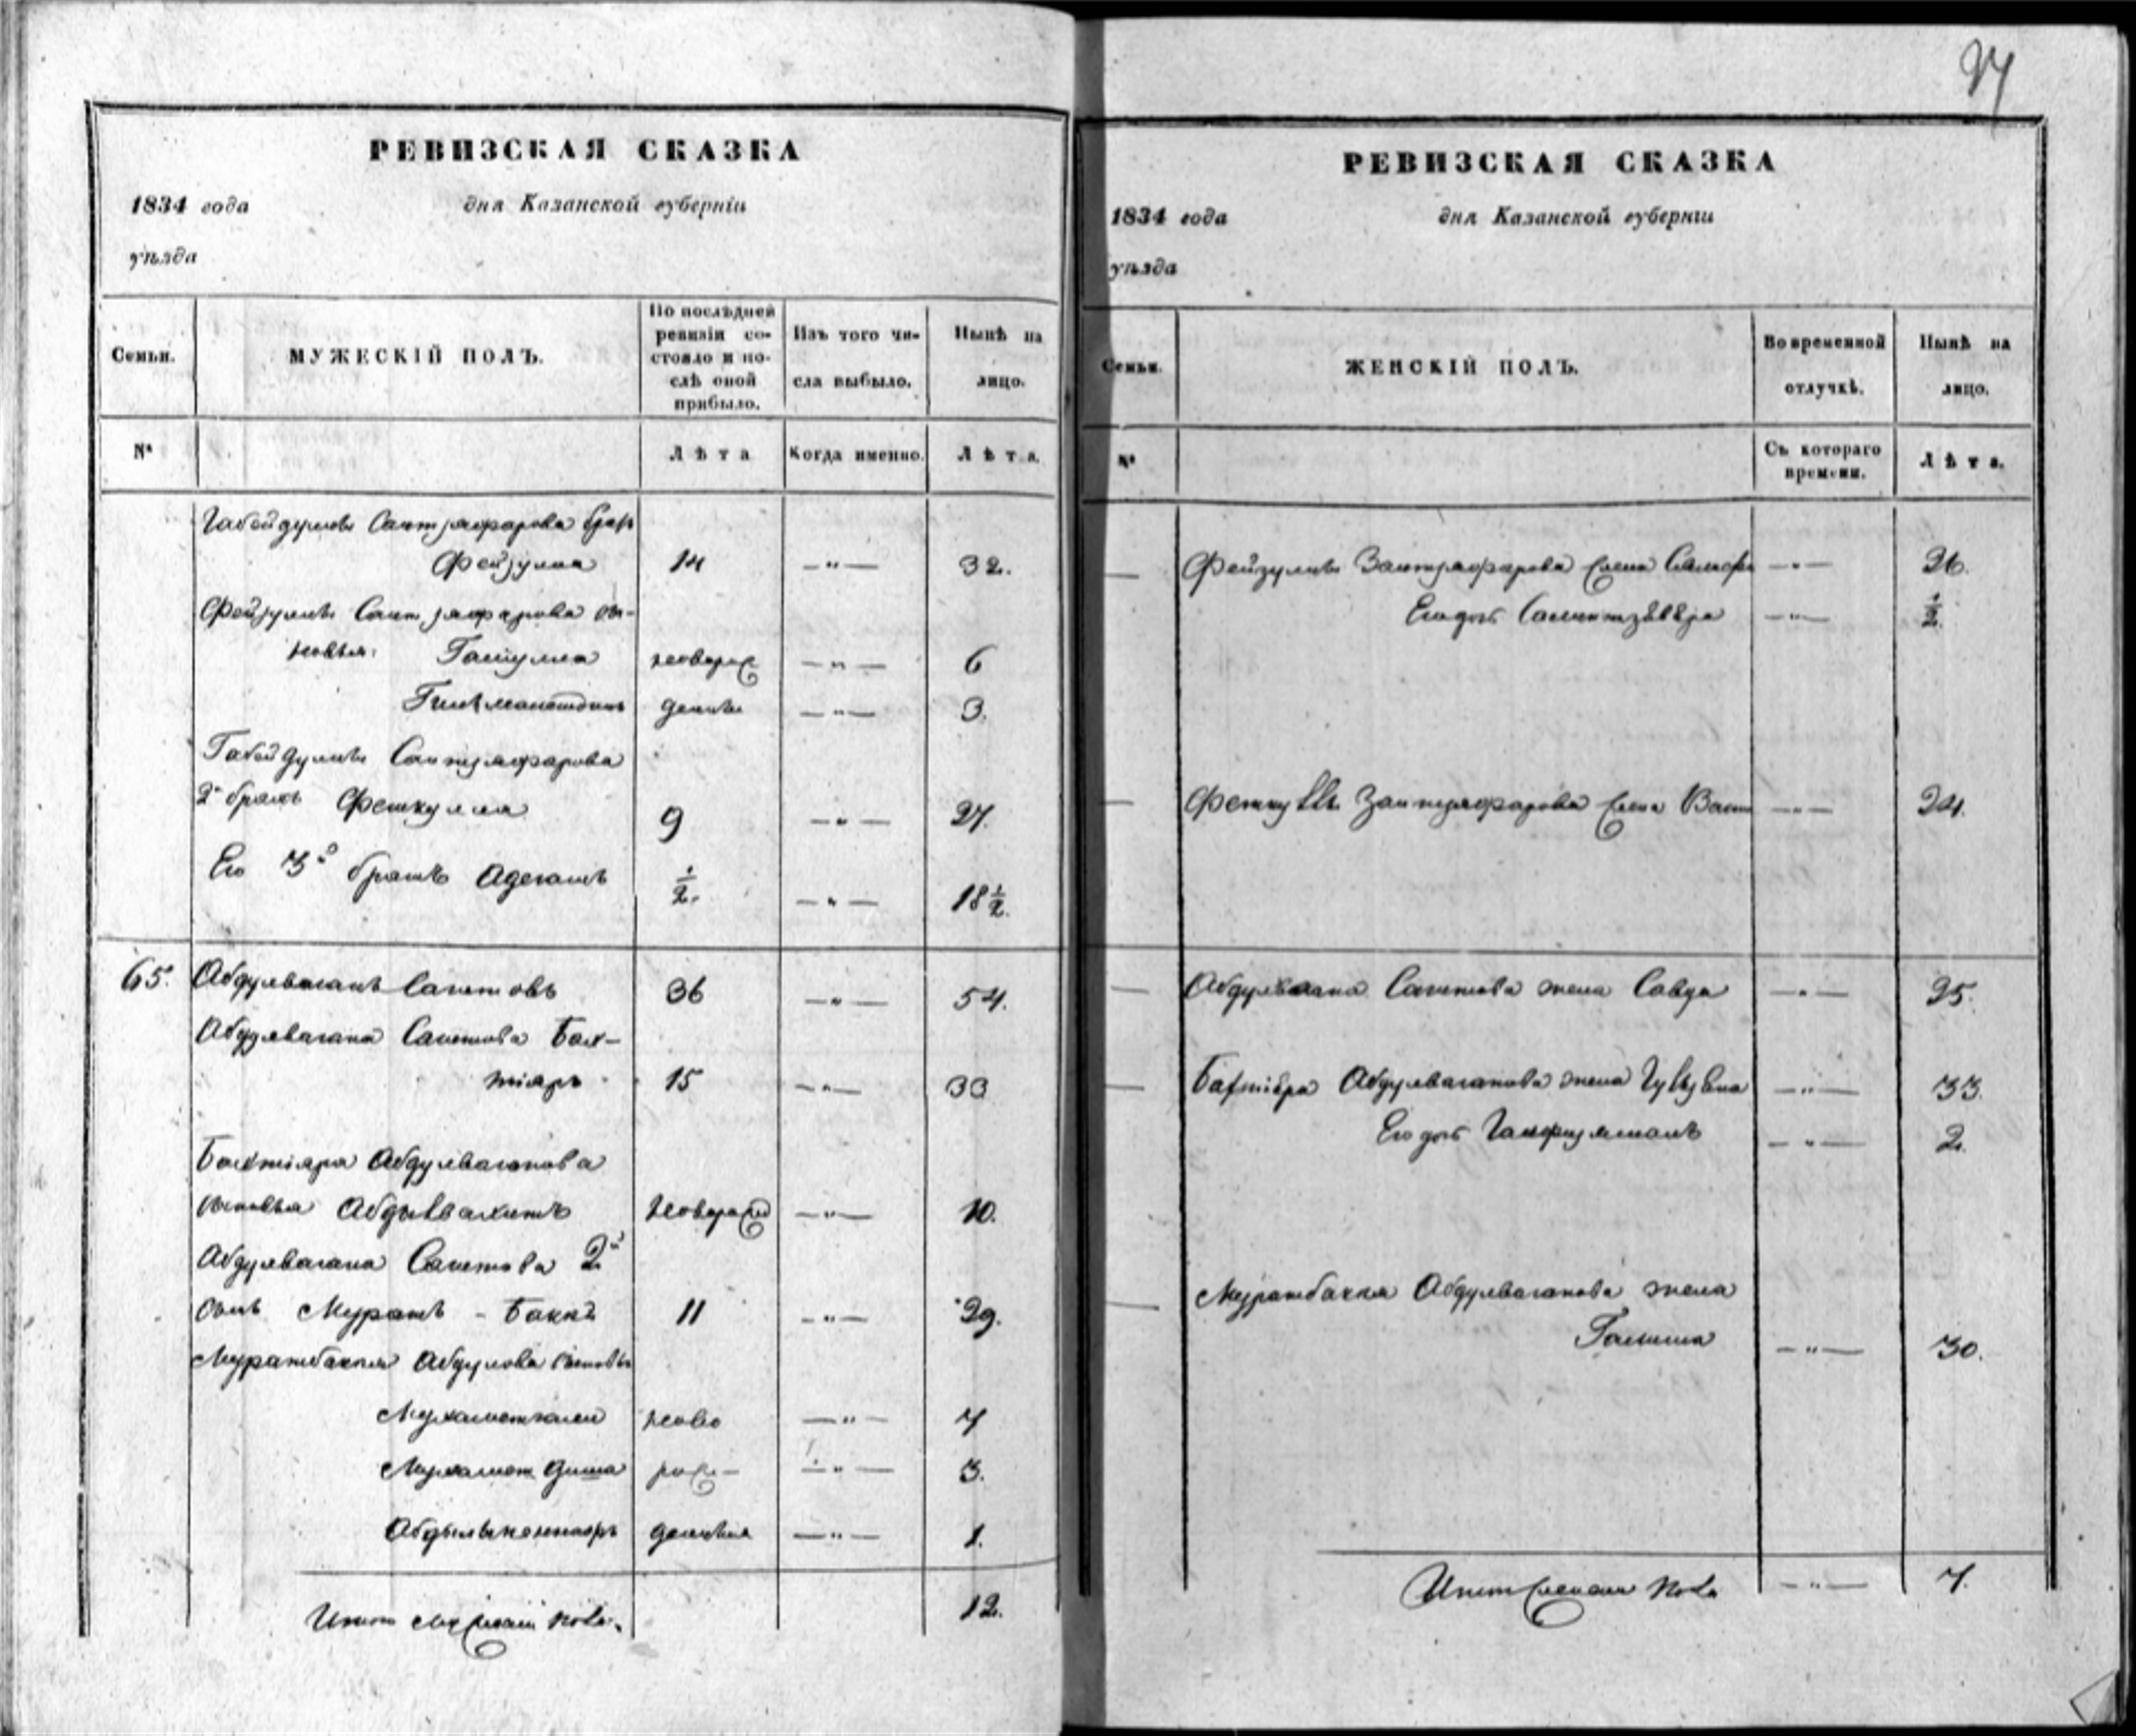 РЕВИЗСКАЯ СКАЗКА
1834 года дня Казанской губерніи
уѣзда
Семьи. МУЖЕСКІЙ ПОЛЪ. По послѣдней ревизіи состояло и послѣ оной прибыло. Изъ того числа выбыло. Нынѣ на лицо.
№ Лѣта Когда именно. Лѣта.
Габейдуллы Саитзяфарова братъ
Фейзулла 14 —"— 32.
Фейзуллы Саитзяфарова сы-
новья: —"— 6
дённые —"— 3.
Габейдуллы Саитзяфарова
2й братъ Феткулла 9 —"— 27.
Его 3й братъ Адегамъ 1/2. —"— 18 1/2.
65. Абдулваганъ Саитовъ 36 —"— 54.
Абдулвагана Саитова Бах-
тіяръ 15 —"— 33
Бахтіяра Абдулваганова
сыновья Абдылвахитъ новорож —"— 10.
Абдулвагана Саитова 2й
сынъ Муратъ-Бакъ 11 —"— 29.
Муратбакия Абдулова сыновья
Мухаметгалей ново —"— 7
Мухамет рож— —"— 3.
денныя —"— 1.
Итого мужеска пола. 12.
27
РЕВИЗСКАЯ СКАЗКА
1834 года дня Казанской губерніи
уѣзда
Семьи. ЖЕНСКІЙ ПОЛЪ. Во временной отлучкѣ. Нынѣ на лицо.
№ Съ котораго времени. Лѣта.
— Фейзуллы Заитзяфарова жена —"— 26.
Его дочь —"— 1/2.
— Феткуллы Заитзяфарова жена —"— 24.
— Абдулвагана Саитова жена Савда —"— 25.
— Бахтіяра Абдулваганова жена —"— 33.
Его дочь —"— 2.
— Муратбакия Абдулваганова жена
Галима —"— 30.
Итого женска пола —"— 7.